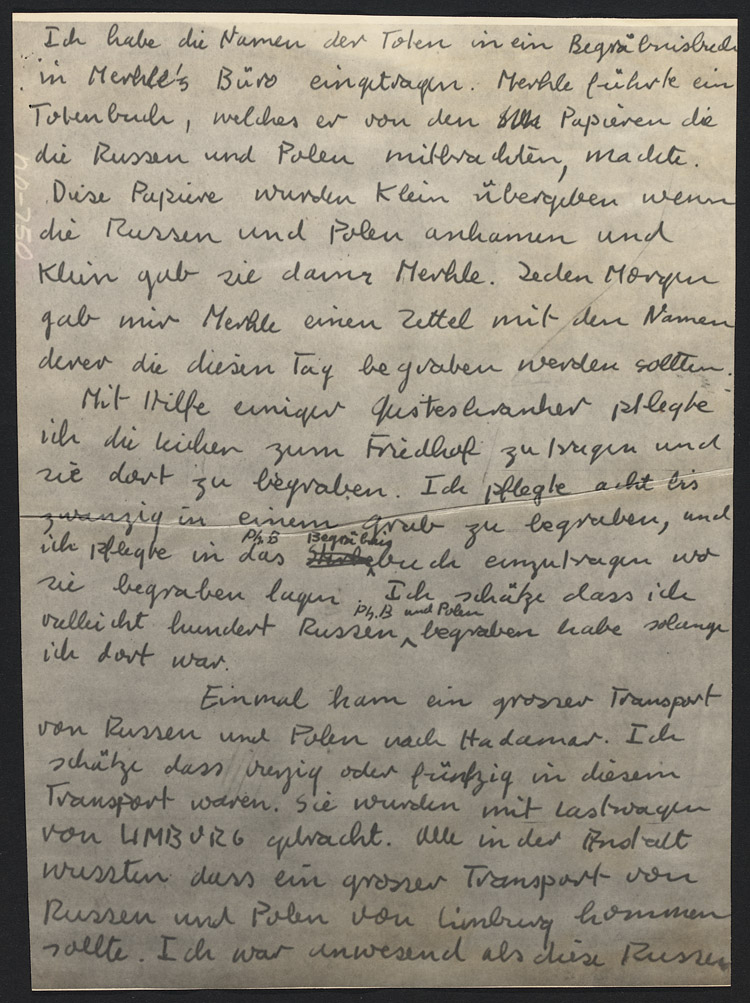 Ich habe die Namen der Toten in ein Begräbnisbuch
in Merkle's Büro eingetragen. Merkle führte ein
Totenbuch, welches er von den Papieren die
die Russen und Polen mitbrachten, machte.
Diese Papiere wurden Klein übergeben wenn
die Russen und Polen ankamen und
Klein gab sie dann Merkle. Jeden Morgen
gab mir Merkle einen Zettel mit den Namen
derer die diesen Tag begraben werden sollten.
Mit Hilfe einiger Geisteskranker pflegte
ich die Leichen zum Friedhof zu tragen und
sie dort zu begraben. Ich pflegte acht bis
zwanzig in einem Grab zu begraben, und
Ph.B Begräbnis
ich pflegte in das buch einzutragen wo
sie begraben lagen. Ich schätze dass ich
Ph.B und Polen
vielleicht hundert Russen begraben habe solange
ich dort war.
Einmal kam ein grosser Transport
von Russen und Polen nach Hadamar. Ich
schätze dass vierzig oder fünfzig in diesem
Transport waren. Sie wurden mit Lastwagen
von LIMBURG gebracht. Alle in der Anstalt
wussten dass ein grosser Transport von
Russen und Polen von Limburg kommen
sollte. Ich war anwesend als diese Russen